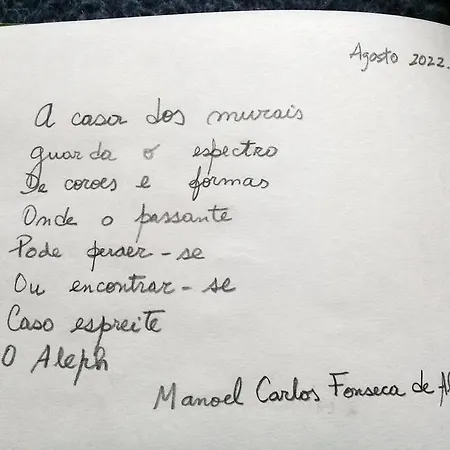 Agosto 2022.
A casa dos murais
guarda o espectro
De coroes e formas
Onde o passante
Pode perder-se
Ou encontrar-se
Caso espreite
O Aleph
Manoel Carlos Fonseca de